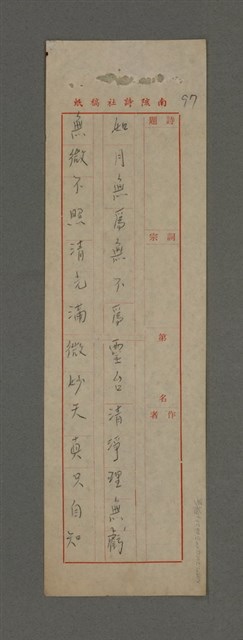 南陔詩社稿紙
97
詩題
詞宗
第 名
作者
如月無爲無不爲靈台清淨理無虧
無微不照清光滿微妙天真只自知